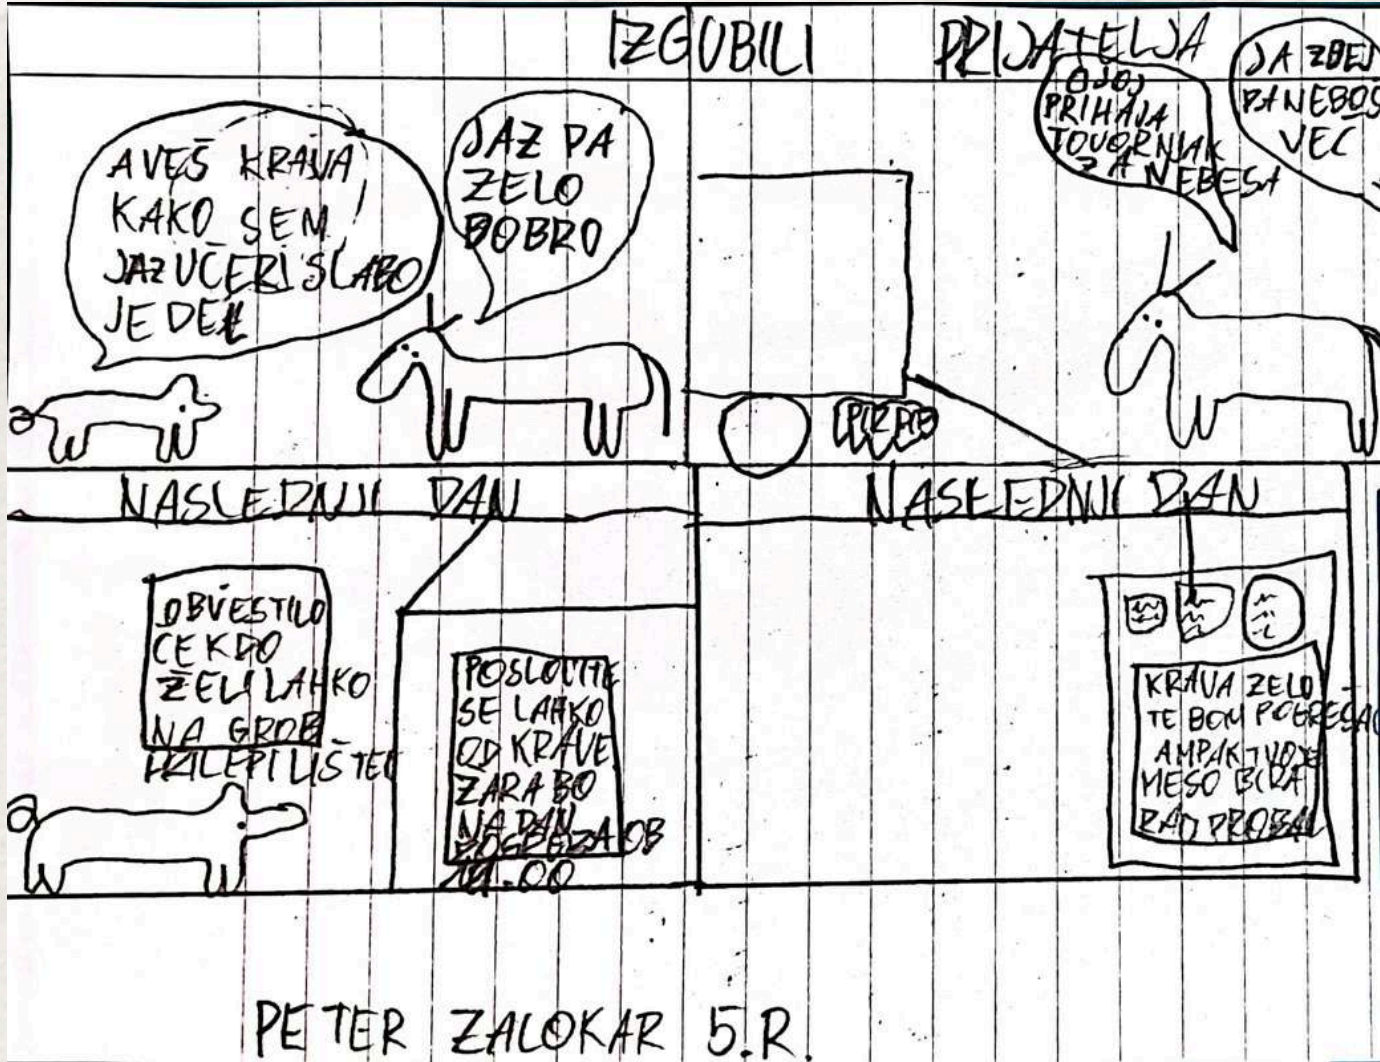 IZGUBILI PRIJATELJA
A VEŠ KRAVA
KAKO SEM
JAZ UČERI SLABO
JEDEL
JAZ PA
ZELO
DOBRO
OJOJ
PRIHAJA
TOVORNJAK
ZA NEBESA
JA ZDEJ
PA NEBOŠ
VEC
NASLEDNJI DAN
OBVESTILO
CE KDO
ŽELI LAHKO
NA GROB
PRILEPI LISTEK
POSLOVITE
SE LAHKO
OD KRAVE
ZARABO
NA DAN
POGREZA OB
11.00
NASLEDNJI DAN
KRAVA ZELO
TE BOM POGREŠAL
AMPAK TVOJE
MESO BI RA
RAD PROBAL
PETER ZALOKAR 5.R.